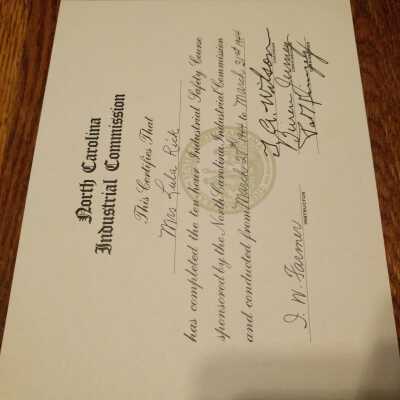 North Carolina
Industrial Commission
This Certifies That
Mrs Lula Rick
has completed the ten hour Industrial Safety Course
sponsored by the North Carolina Industrial Commission
and conducted from March to March 21st 1964
J. A. Wilson
I. W. Farmer
INSTRUCTOR